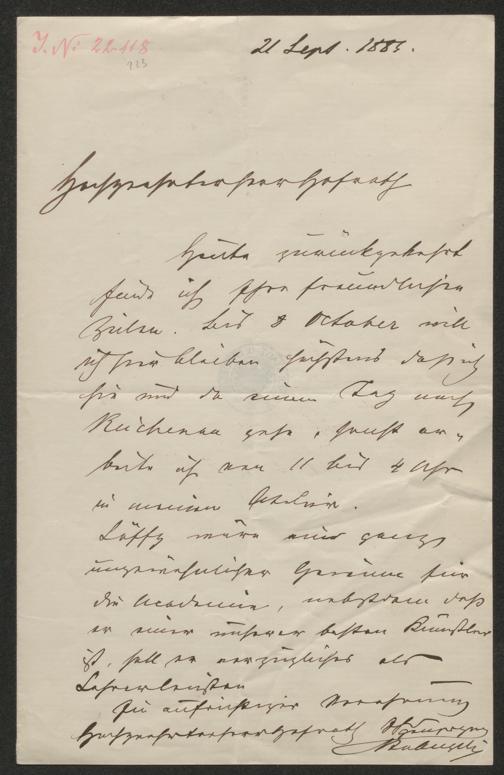 J. N: 22.118
223
21 Sept. 1883.
Hochgeehrter Herr Hofrath
Heute zurückgekehrt
finde ich Ihre freundlichen
Zeilen. Bis 8 October will
ich hier bleiben höchstens daß ich
hie und da einen Tag nach
Reichenau gehe, sonst ar-
beite ich von 11 bis 4 Uhr
in meinem Atelier.
Löffz wäre ein ganz
ungewöhnlicher Gewinn für
die Academie, nebstdem daß
er einer unserer besten Künstler
ist, soll er vorzügliches als
Lehrer leisten
In aufrichtiger Verehrung
Hochgeehrter Herr Hofrath